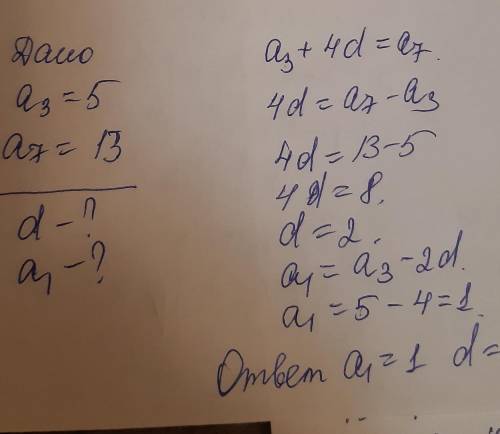 Дано
a₃ = 5
a₇ = 13
d - ?
a₁ - ?
a₃ + 4d = a₇.
4d = a₇ - a₃
4d = 13 - 5
4d = 8.
d = 2.
a₁ = a₃ - 2d.
a₁ = 5 - 4 = 1.
Ответ a₁ = 1 d =